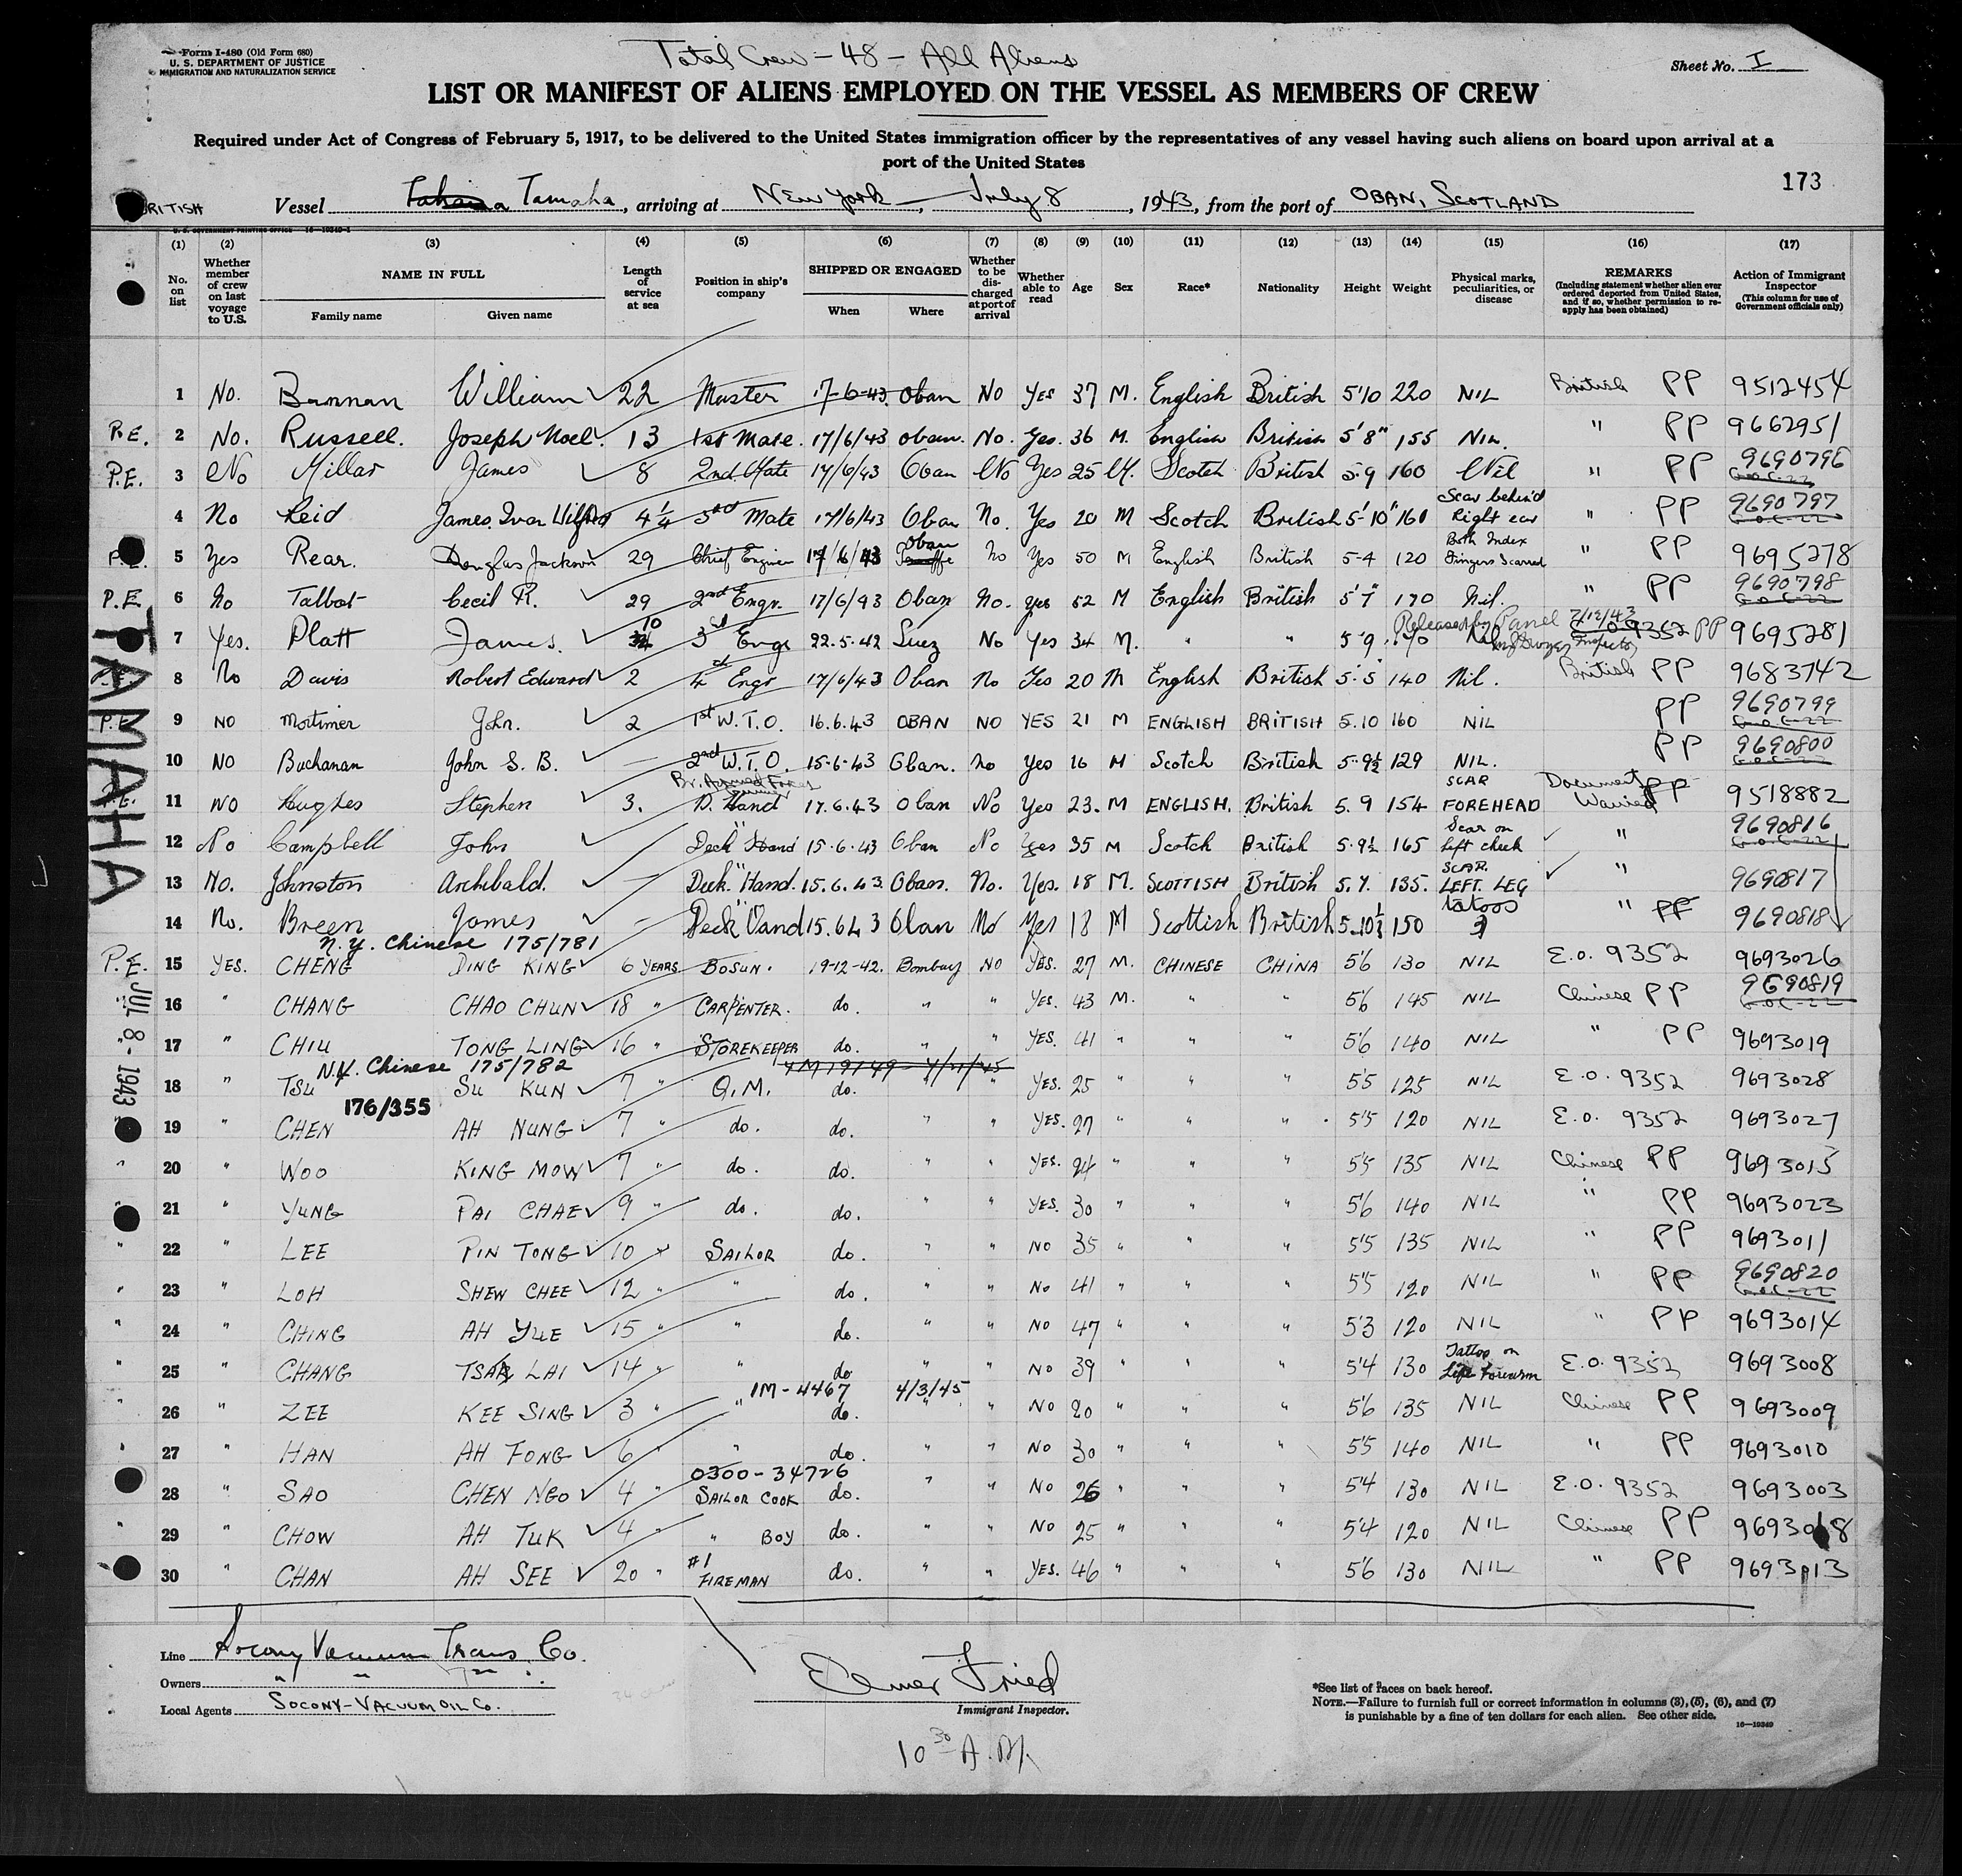 Form I-480 (Old Form 680)
U. S. DEPARTMENT OF JUSTICE
IMMIGRATION AND NATURALIZATION SERVICE
Total Crew - 48 - All Aliens
Sheet No. I
LIST OR MANIFEST OF ALIENS EMPLOYED ON THE VESSEL AS MEMBERS OF CREW
Required under Act of Congress of February 5, 1917, to be delivered to the United States immigration officer by the representatives of any vessel having such aliens on board upon arrival at a
port of the United States
173
BRITISH Vessel Tamaha, arriving at New York, July 8, 1943, from the port of OBAN, SCOTLAND
(1) (2) (3) (4) (5) (6) (7) (8) (9) (10) (11) (12) (13) (14) (15) (16) (17)
No. on list
Whether member of crew on last voyage to U.S.
NAME IN FULL
Family name
Given name
Length of service at sea
Position in ship's company
SHIPPED OR ENGAGED
When
Where
Whether to be discharged at port of arrival
Whether able to read
Age
Sex
Race*
Nationality
Height
Weight
Physical marks, peculiarities, or disease
REMARKS
(Including statement whether alien ever ordered deported from United States, and if so, whether permission to re-apply has been obtained)
Action of Immigrant Inspector
(This column for use of Government officials only)
1 No. Brennan William 22 Master 17-6-43. Oban No Yes 37 M. English British 5'10 220 NIL British PP 9512454
P.E. 2 No. Russell. Joseph Noel. 13 1st Mate. 17/6/43 Oban. No. Yes. 36 M. English British 5'8" 155 NIL. " PP 9662951
P.E. 3 No Millar James 8 2nd Mate 17/6/43 Oban No Yes 25 M. Scotch British 5.9 160 Nil " PP 9690796
4 No Reid James Ivor Wilfred 4¼ 3rd Mate 17/6/43 Oban No. Yes 20 M Scotch British 5'-10" 160 Scar behind Right ear " PP 9690797
P.E. 5 Yes Rear. Douglas Jackson 29 Chief Engineer 17/6/43 Oban No Yes 50 M English British 5-4 120 Both Index Fingers Scarred " PP 9695278
P.E 6 No Talbot Cecil R. 29 2nd Engr. 17/6/43 Oban No. Yes 52 M English British 5'7" 170 Nil. " PP 9690798
7 Yes. Platt James. 10 3rd Engr 22.5.42 Suez No Yes 34 M. " " 5 9 170 Released by Panel 7/12/43 9352 PP 9695281
8 No Davis Robert Edward 2 4th Engr 17/6/43 Oban No Yes 20 M English British 5'5" 140 Nil. British PP 9683742
P.E. 9 NO Mortimer John. 2 1st W.T.O. 16.6.43 OBAN NO YES 21 M ENGLISH BRITISH 5.10 160 NIL PP 9690799
10 NO Buchanan John S. B. — 2nd W.T.O. 15-6-43 Oban. No Yes 16 M Scotch British 5-9½ 129 NIL. PP 9690800
11 NO Hughes Stephen 3. D. Hand 17.6.43 Oban No Yes 23. M ENGLISH. British 5. 9 154 SCAR FOREHEAD Document Waived 9518882
12 No Campbell John Deck Hand 15.6.43 Oban No Yes 35 M Scotch British 5.9½ 165 Scar on left cheek " 9690816
13 No. Johnston Archibald. — Deck Hand. 15.6.43. Oban. No. Yes. 18 M. SCOTTISH British 5.7. 135. SCAR. LEFT. LEG " 9690817
14 No. Breen James - Deck Hand 15.6.43 Oban No Yes 18 M Scottish British 5.10½ 150 tatoos " 9690818
N.Y. Chinese 175/781
P.E. 15 YES. CHENG DING KING 6 YEARS BOSUN. 19-12-42. Bombay NO YES. 27 M. CHINESE CHINA 5'6 130 NIL E.O. 9352 9693026
16 " CHANG CHAO CHUN 18 " CARPENTER. do. " " YES. 43 M. " " 5'6 145 NIL Chinese PP 9690819
17 " CHIU TONG LING 16 " STOREKEEPER do. " " YES. 41 " " " 5'6 140 NIL " PP 9693019
N.Y. Chinese 175/782
18 " TSU SU KUN 7 " Q.M. do. " " YES. 25 " " " 5'5 125 NIL E.O. 9352 9693028
176/355
19 " CHEN AH NUNG 7 " do. do. " " YES. 27 " " " 5'5 120 NIL E.O. 9352 9693027
20 " WOO KING MOW 7 " do. do. " " YES. 24 " " " 5'5 135 NIL Chinese PP 9693015
21 " YUNG PAI CHAE 9 " do. do. " " YES. 30 " " " 5'6 140 NIL " PP 9693023
22 " LEE PIN TONG 10 " SAILOR do. " " NO 35 " " " 5'5 135 NIL " PP 9693011
23 " LOH SHEW CHEE 12 " " do. " No 41 " " " 5'5 120 NIL " PP 9690820
24 " CHING AH YUE 15 " " do. " " NO 47 " " " 5'3 120 NIL " PP 9693014
25 " CHANG TSAR LAI 14 " " do " " NO 39 " " " 5'4 130 Tattoo on Left Forearm E.O. 9352 9693008
1M-4467 4/3/45
26 " ZEE KEE SING 3 " " do. " " NO 20 " " " 5'6 135 NIL Chinese PP 9693009
27 " HAN AH FONG 6 " " do " " NO 30 " " " 5'5 140 NIL " PP 9693010
0300-34726
28 " SAO CHEN NGO 4 " SAILOR COOK do. " " NO 26 " " " 5'4 130 NIL E.O. 9352 9693003
29 " CHOW AH TUK 4 " " BOY do. " " NO 25 " " " 5'4 120 NIL Chinese PP 9693018
30 " CHAN AH SEE 20 " #1 FIREMAN do. " " YES. 46 " " " 5'6 130 NIL " PP 9693013
TAMAHA
JUL 8-1943
Line Socony Vacuum Trans. Co.
Owners " " "
Local Agents SOCONY-VACUUM OIL Co.
Elmer Fried
Immigrant Inspector.
10 30 A.M.
*See list of races on back hereof.
NOTE.—Failure to furnish full or correct information in columns (3), (5), (6), and (7)
is punishable by a fine of ten dollars for each alien. See other side.
16—19349